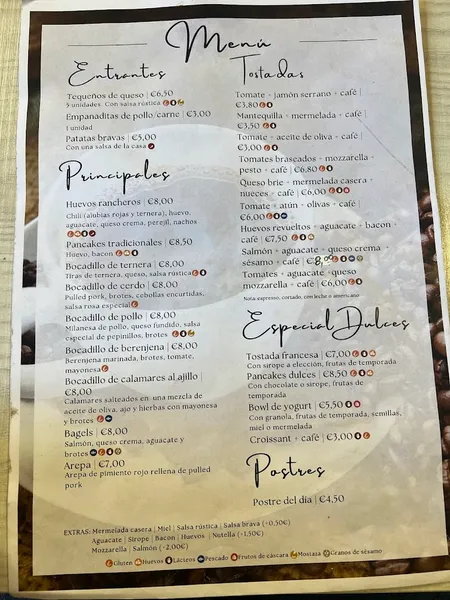 Menú
Entrantes
Tequeños de queso | €6,50
5 unidades. Con salsa rústica
Empanaditas de pollo/carne | €3,00
1 unidad
Patatas bravas | €5,00
Con una salsa de la casa
Principales
Huevos rancheros | €8,00
Chili (alubias rojas y ternera), huevo,
aguacate, queso crema, perejil, nachos
Pancakes tradicionales | €8,50
Huevo, bacon
Bocadillo de ternera | €8,00
Tiras de ternera, queso, salsa rústica
Bocadillo de cerdo | €8,00
Pulled pork, brotes, cebollas encurtidas,
salsa rosa especial
Bocadillo de pollo | €8,00
Milanesa de pollo, queso fundido, salsa
especial de pepinillos, brotes
Bocadillo de berenjena | €8,00
Berenjena marinada, brotes, tomate,
mayonesa
Bocadillo de calamares al ajillo |
€8,00
Calamares salteados en una mezcla de
aceite de oliva, ajo y hierbas con mayonesa
y brotes
Bagels | €8,00
Salmón, queso crema, aguacate y
brotes
Arepa | €7,00
Arepa de pimiento rojo rellena de pulled
pork
Tostadas
Tomate + jamón serrano + café |
€3,80
Mantequilla + mermelada + café |
€3,50
Tomate + aceite de oliva + café |
€3,00
Tomates braseados + mozzarella +
pesto + café | €6,80
Queso brie + mermelada casera +
nueces + café | €6,00
Tomate + atún + olivas + café |
€6,00
Huevos revueltos + aguacate + bacon +
café | €7,50
Salmón + aguacate + queso crema +
sésamo + café | €8,
Tomates + aguacate + queso
mozzarella + café | €6,00
Nota: espresso, cortado, con leche o americano
Especial Dulces
Tostada francesa | €7,00
Con sirope a elección, frutas de temporada
Pancakes dulces | €8,50
Con chocolate o sirope, frutas de
temporada
Bowl de yogurt | €5,50
Con granola, frutas de temporada, semillas,
miel o mermelada
Croissant + café | €3,00
Postres
Postre del día | €4,50
EXTRAS: Mermelada casera | Miel | Salsa rústica | Salsa brava (+0,50€)
Aguacate | Sirope | Bacon | Huevos | Nutella (+1,50€)
Mozzarella | Salmón (+2,00€)
Gluten Huevos Lácteos Pescado Frutos de cáscara Mostaza Granos de sésamo